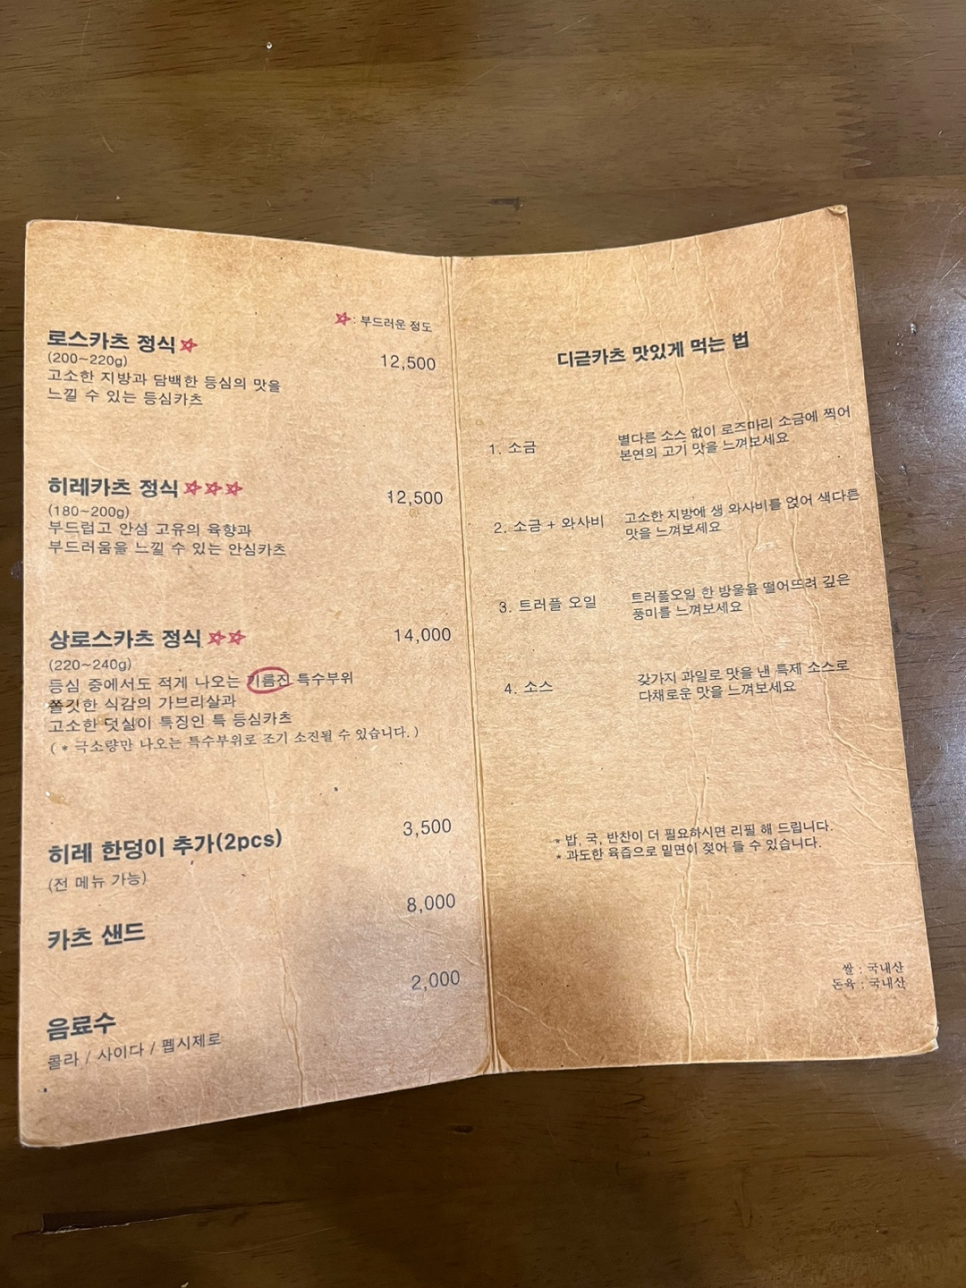 ☆: 부드러운 정도
로스카츠 정식☆
12,500
(200~220g)
고소한 지방과 담백한 등심의 맛을
느낄 수 있는 등심카츠
히레카츠 정식☆☆☆
12,500
(180~200g)
부드럽고 안심 고유의 육향과
부드러움을 느낄 수 있는 안심카츠
상로스카츠 정식☆☆
14,000
(220~240g)
등심 중에서도 적게 나오는 기름진 특수부위
쫄깃한 식감의 가브리살과
고소한 덧살이 특징인 특 등심카츠
( * 극소량만 나오는 특수부위로 조기 소진될 수 있습니다. )
히레 한덩이 추가(2pcs)
3,500
(전 메뉴 가능)
카츠 샌드
8,000
음료수
2,000
콜라 / 사이다 / 펩시제로
디귿카츠 맛있게 먹는 법
1. 소금
별다른 소스 없이 로즈마리 소금에 찍어
본연의 고기 맛을 느껴보세요
2. 소금 + 와사비
고소한 지방에 생 와사비를 얹어 색다른
맛을 느껴보세요
3. 트러플 오일
트러플오일 한 방울을 떨어뜨려 깊은
풍미를 느껴보세요
4. 소스
갖가지 과일로 맛을 낸 특제 소스로
다채로운 맛을 느껴보세요
* 밥, 국, 반찬이 더 필요하시면 리필 해 드립니다.
* 과도한 육즙으로 밑면이 젖어 들 수 있습니다.
쌀 : 국내산
돈육 : 국내산